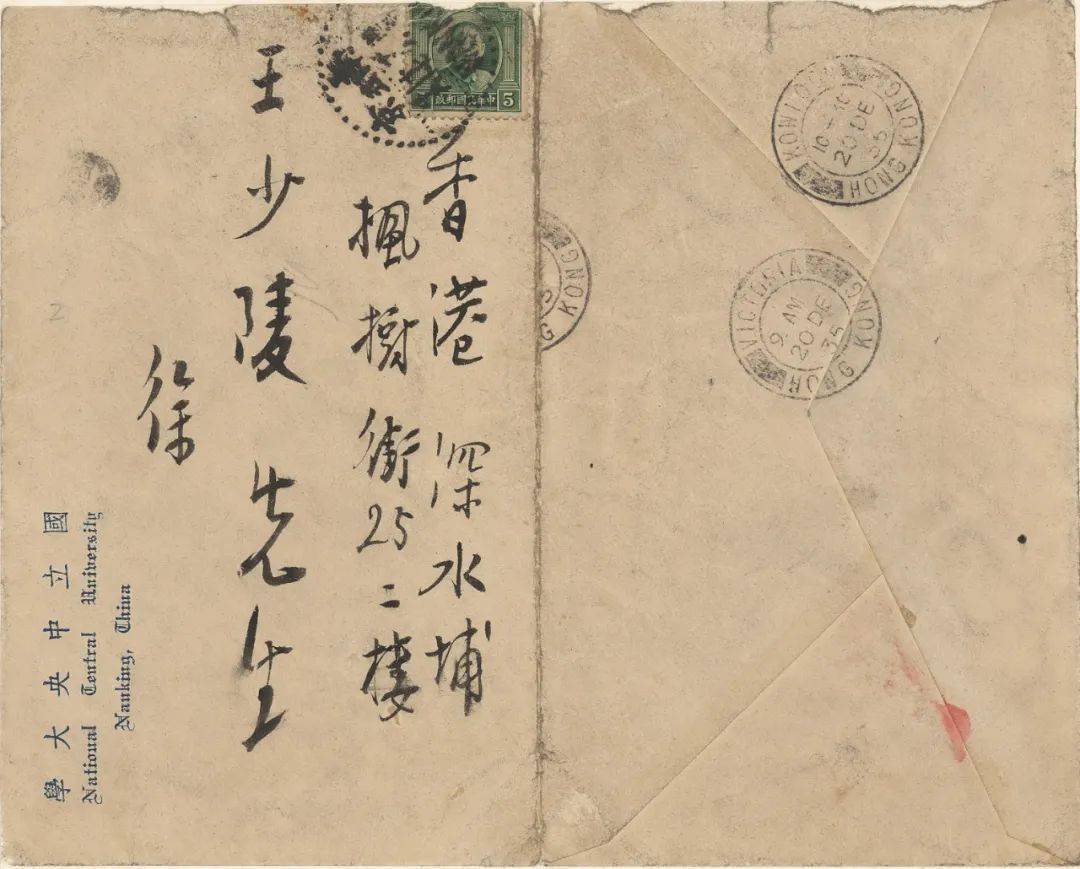 香港 深水埔
楓樹街25二樓
王少陵先生
徐
國立中央大學
National Central University
Nanking, China
中華民國郵政
5
5
KOWLOON
HONG KONG
20 DE
35
VICTORIA
HONG KONG
9 AM
20 DE
35
G KONG